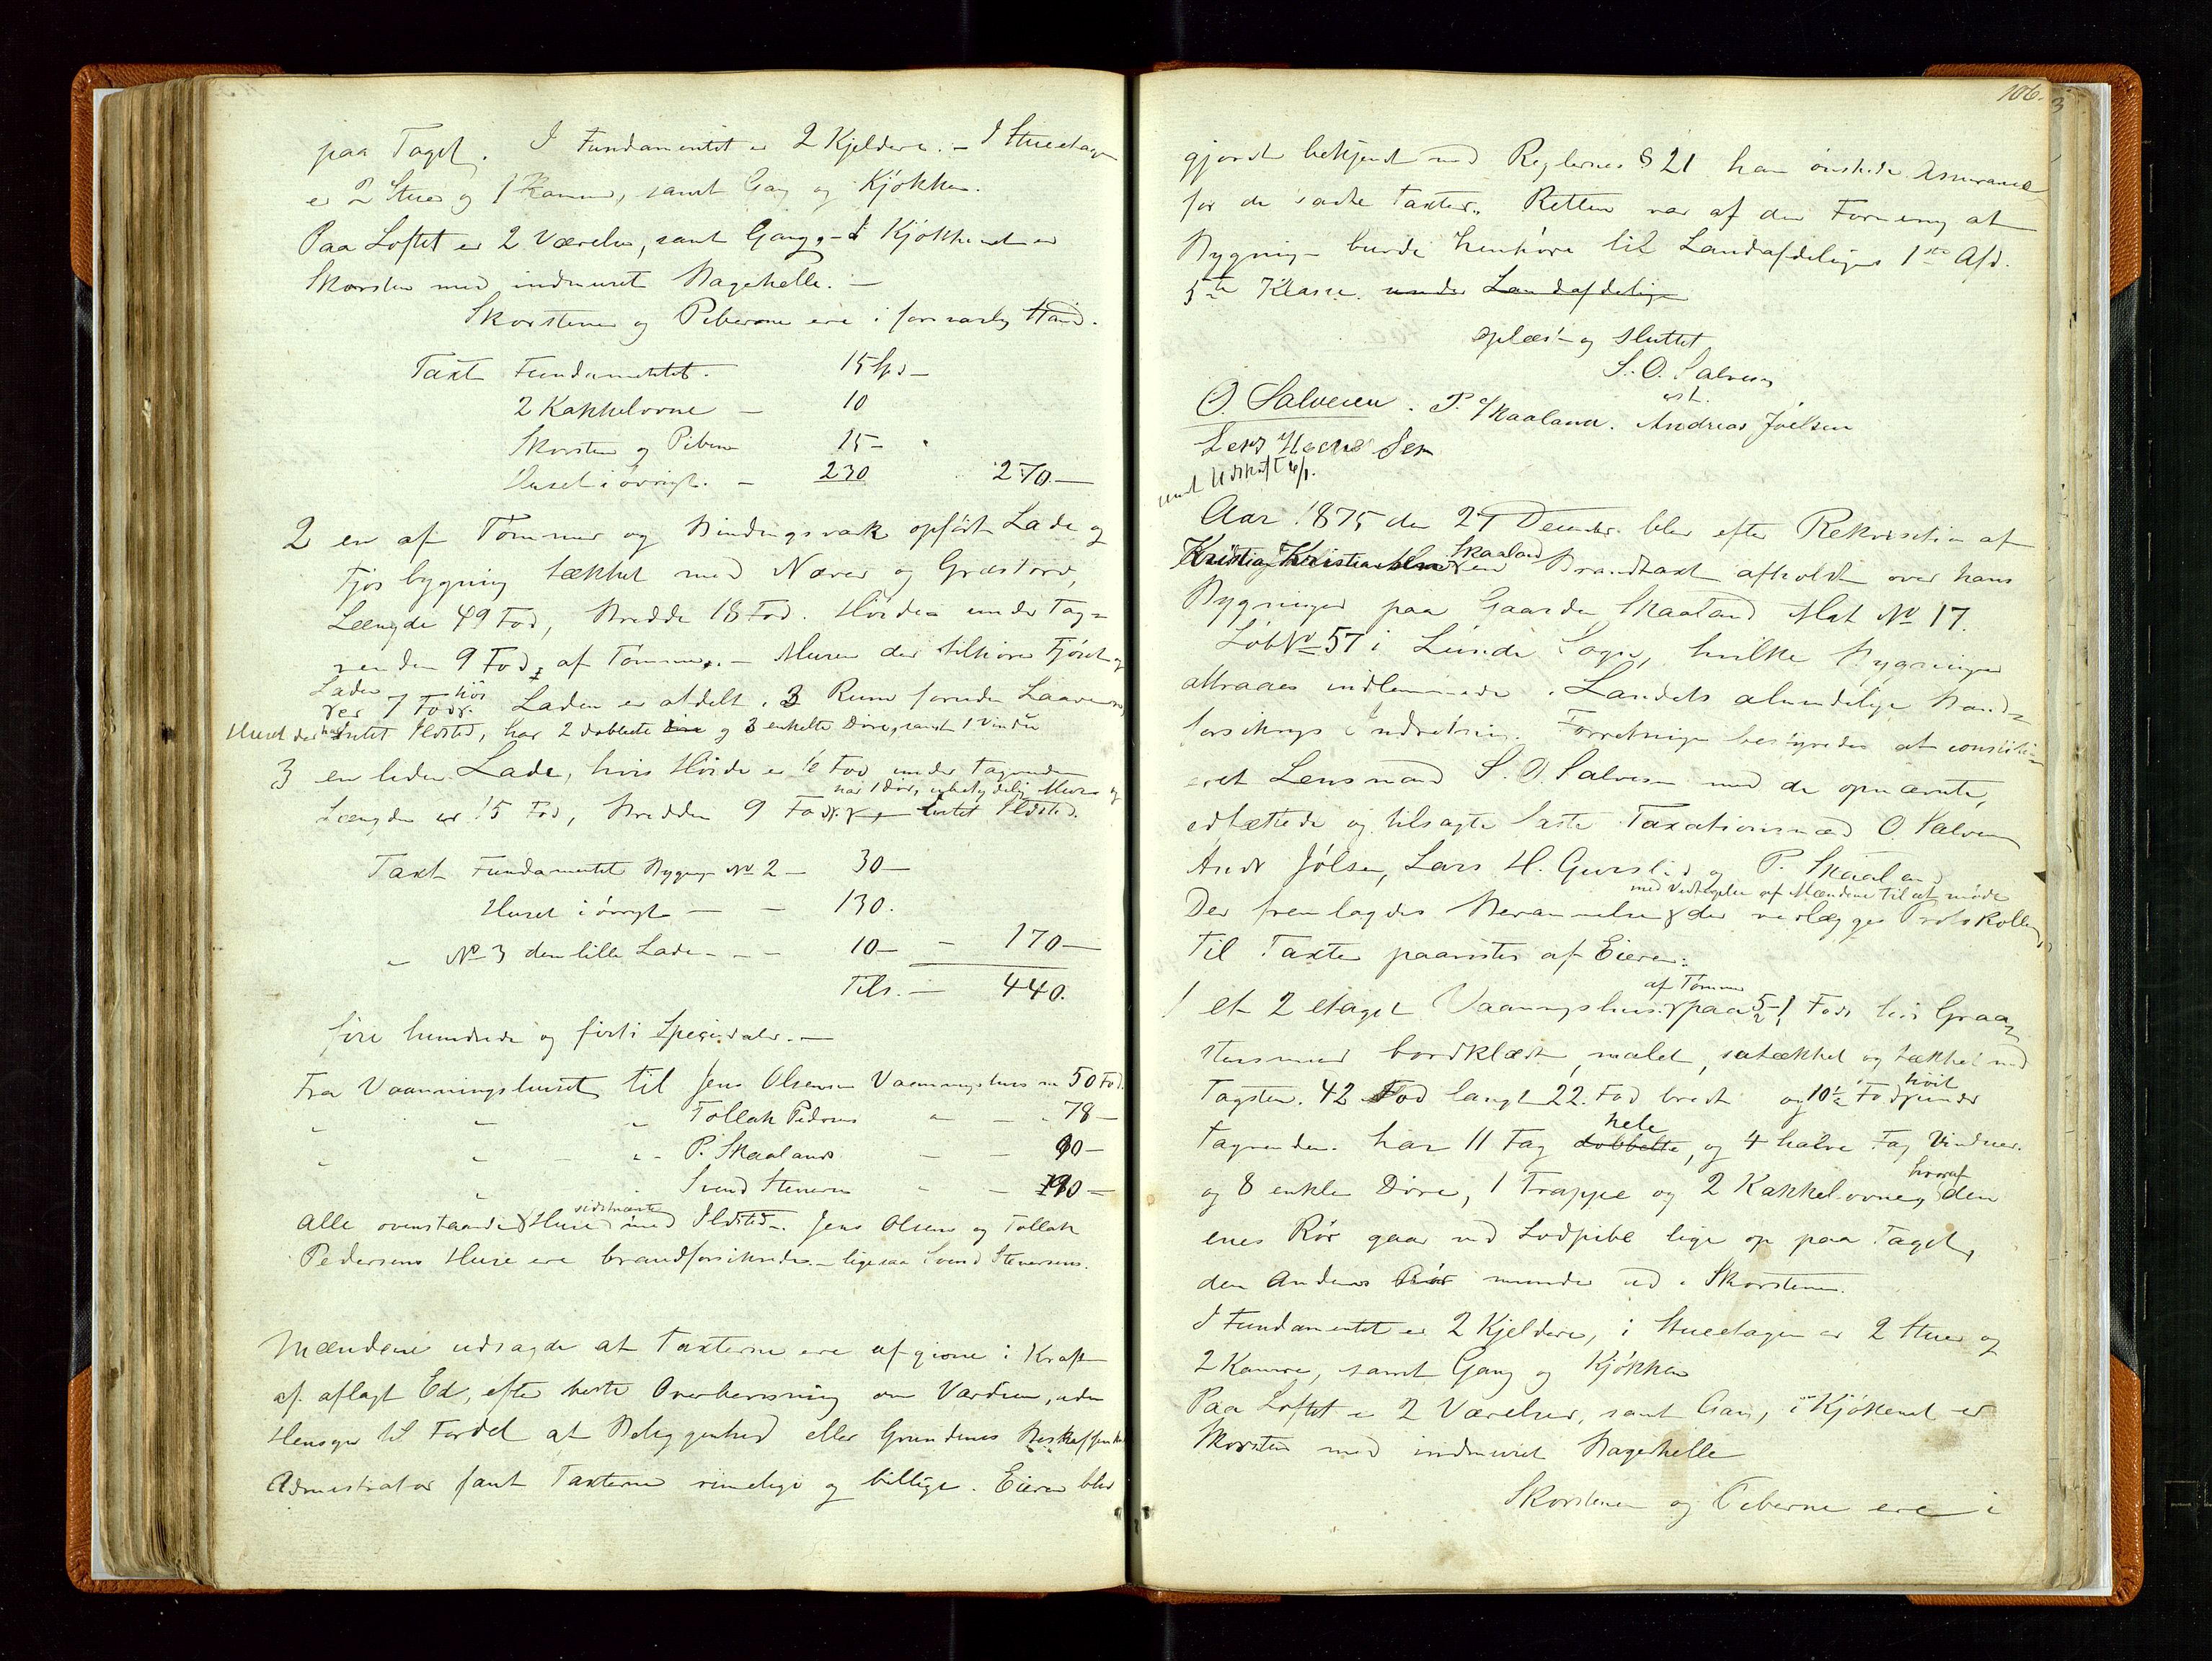 paa Taget. I Fundamentet er 2 Kjeldere. – I Stueetagen
er 2 Stuer og 1 Kammer, samt Gang og Kjøkken.
Paa Loftet er 2 Værelser, samt Gang, – I Kjøkkenet er
Skorsten med indmuret Bagehelle. –
Skorstenen og Piberne ere i forsvarlig Stand.
Taxt Fundamentet. 15 Spd –
2 Kakkelovne – 10
Skorsten og Piben 15 –
Huset i øvrigt. – 230 270 –
2 en af Tømmer og Bindingsværk opført Lade og
Fjøsbygning tækket med Næver og Græstorv,
Længde 49 Fod, Bredde 18 Fod. Høiden under Tag-
renden 9 Fod, af Tømmer. – Muren der tilhører Fjøset og
Laden er 7 Fod høi. Laden er afdelt i 3 Rum foruden Laaven
Huset der har intet Ildsted, har 2 dobbelte Døre og 3 enkelte Døre, samt 1 Vindu
3 en liden Lade, hvis Høide er 6 Fod under Tagrenden
har 1 Dør, ubetydelig Mur og
Længden er 15 Fod, Bredden 9 Fod. intet Ildsted.
Taxt Fundamentet Bygning No 2 – 30 –
Huset i øvrigt – – 130.
" No 3 den lille Lade – – – 10 – – 170 –
Tils. – 440.
fire hundrede og firti Speciedaler. –
Fra Vaanningshuset til Jens Olsens Vaanningshus er 50 Fod.
" " " Tollak Peders " – " 78 –
" " " P. Skaalands – – 90 –
" " " Svend Stenersens " – 190 –
Alle ovenstaaende Huse sidstnævnte med Ildsted. Jens Olsens og Tollak
Pedersens Huse ere brandforsikrede. – ligesaa Svend Stenersens.
Mændene udsagde at Taxterne ere afgivne i Kraft
af aflagt Ed, efter beste Overbevisning om Værdien, uden
Hensyn til Fordel af Beliggenhed eller Grundens Beskaffenhed
Administrator fant Taxterne rimelige og billige. Eieren blev
106.
gjordt bekjendt med Reglernes § 21 han ønskede Assurance
for de satte Taxter. Retten var af den Formening at
Bygning burde henhøre til Landafdelingens 1ste Afd.
5te Klasse. under Landafdeling
oplæst og sluttet
S. O. Salvesen
cst.
O. Salvesen. P. Skaaland. Andreas Joelsen
Lars Hansen
meddelt Udskrift 6/1.
Aar 1875 den 27 December blev efter Rekvisition af
Kristian Kristiansen Skaaland en Brandtaxt afholdt over hans
Bygninger paa Gaarden Skaaland Mat No 17.
Løb No 57 i Lunde Sogn, hvilke Bygninger
attraaes indlemmede i Landets almindelige Brand-
forsikrings Indretning. Forretningen bestyredes af constitu-
eret Lensmand S. O. Salvesen med de opnævnte,
edfæstede og tilsagte faste Taxationsmænd O Salvesen
Andr Jølsen, Lars H. Gurslid og P. Skaaland
med Vedtagelse af Mændene til at møde
Der fremlagdes Berammelse der vedlægges Protokollen
Til Taxten paavistes af Eieren:
1 et 2 etaget Vaaningshus af Tømmer paa 5–1/2 Fods høi Graa-
stensmur bordklædt, malet, sutækket og tækket med
Tagsten. 42 Fod langt 22 Fod bredt og 10 1/2 Fod høit under
Tagrenden. har 11 Fag dobbelte hele, og 4 halve Fag Vinduer.
og 8 enkle Døre, 1 Trappe og 2 Kakkelovne, hvoraf den
enes Rør gaar ud Lodpibe lige op paa Taget,
den Andens Rør munder ud i Skorstenen.
I Fundamentet er 2 Kjeldere, i Stueetagen er 2 Stuer og
2 Kamre, samt Gang og Kjøkken
Paa Loftet er 2 Værelser, samt Gang, i Kjøkkenet er
Skorsten med indmuret Bagehelle
Skorstenen og Piberne ere i